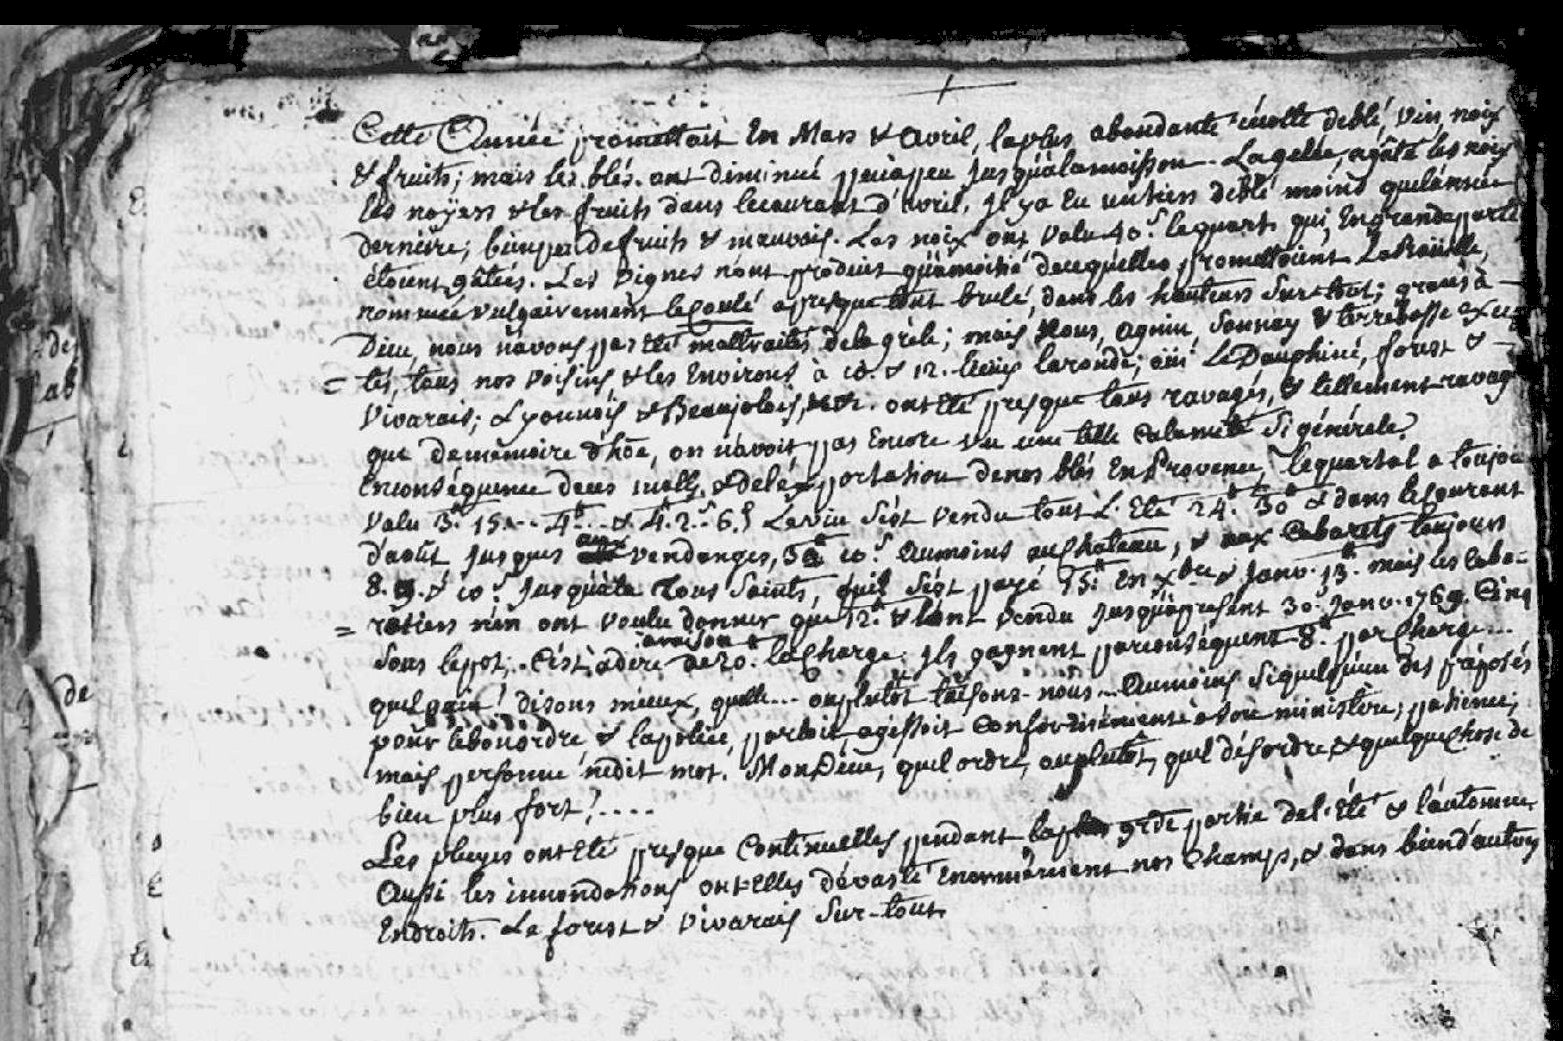 Cette Année promettoit En Mars & Avril, la plus abondante récolte de blé, vin, noix
& fruits; mais les blés ont diminué peu à peu jusqu'à la moisson. La gelée, a gâté les noix
les noÿers & les fruits dans le courant d'Avril. Il y a Eu un tiers de blé moins que l'année
derniére; bien peu de fruits & mauvais. Les noix ont valu 40.s le quart, qui, En grande partie
étoient gâtées. Les vignes n'ont produit qu'à moitié de ce qu'elles promettoient. La Roüille,
nommée vulgairement le Coulé a presque tout brulé, dans les hautins Sur-tout; graces à
Dieu, nous n'avons pas Eté maltraités de la grèle; mais Nous, Agnin, Sonnay & terrebasse excep
=tés, tous nos voisins & les Environs à 10. & 12. lieües la ronde; oüi Le Dauphiné, forest &
Vivarais; Lyonnois & Beaujolois, &c. ont Eté presque tous ravagés, & tellement ravag
que de mémoire d'hoe, on n'avoit pas Encore vu une telle calamité Si générale.
En conséquence de ces & de l'éxportation de nos blés En Provence, le quartal a toujou
valu 3.# 15s... 4.#... & 4.# 2.s 6.d Le vin S'est vendu tout L'Eté 24.# 30.# & dans le Courent
d'août jusques aux vendanges, 10.s Aumoins au Chateau, & aux Cabarets toujours
8. 9. & 10.s Jusqu'à la Tous Saints, qu'il S'est payé 15.# En Xbre & Janv. 13.# mais les caba-
=retiers n'en ont voulu donner que 12.# & l'ont vendu jusqu'àprésent 30. Janv. 1769. Cinq
Sous le pot; C'est à dire a raison de 20.# la Charge. Ils gagnent par conséquent 8.# par Charge...
quel gain! disons mieux, quelle... ou plutôt taisons-nous... Aumoins Si quelqu'un des préposés
pour le bon ordre, & la police, parloit, agissoit Conformément à Son ministère; patience;
mais personne ne dit mot. Mon Dieu, quel ordre, ou plutôt, quel désordre & quelque chose de
bien plus fort?....
Les pluyes ont Eté presque Continuelles pendant la grde partie de l'Eté & l'automne
Aussi les innondations ont-Elles dévasté Enormément nos champs, & dans bien d'autres
Endroits. Le forest & Vivarais Sur-tout